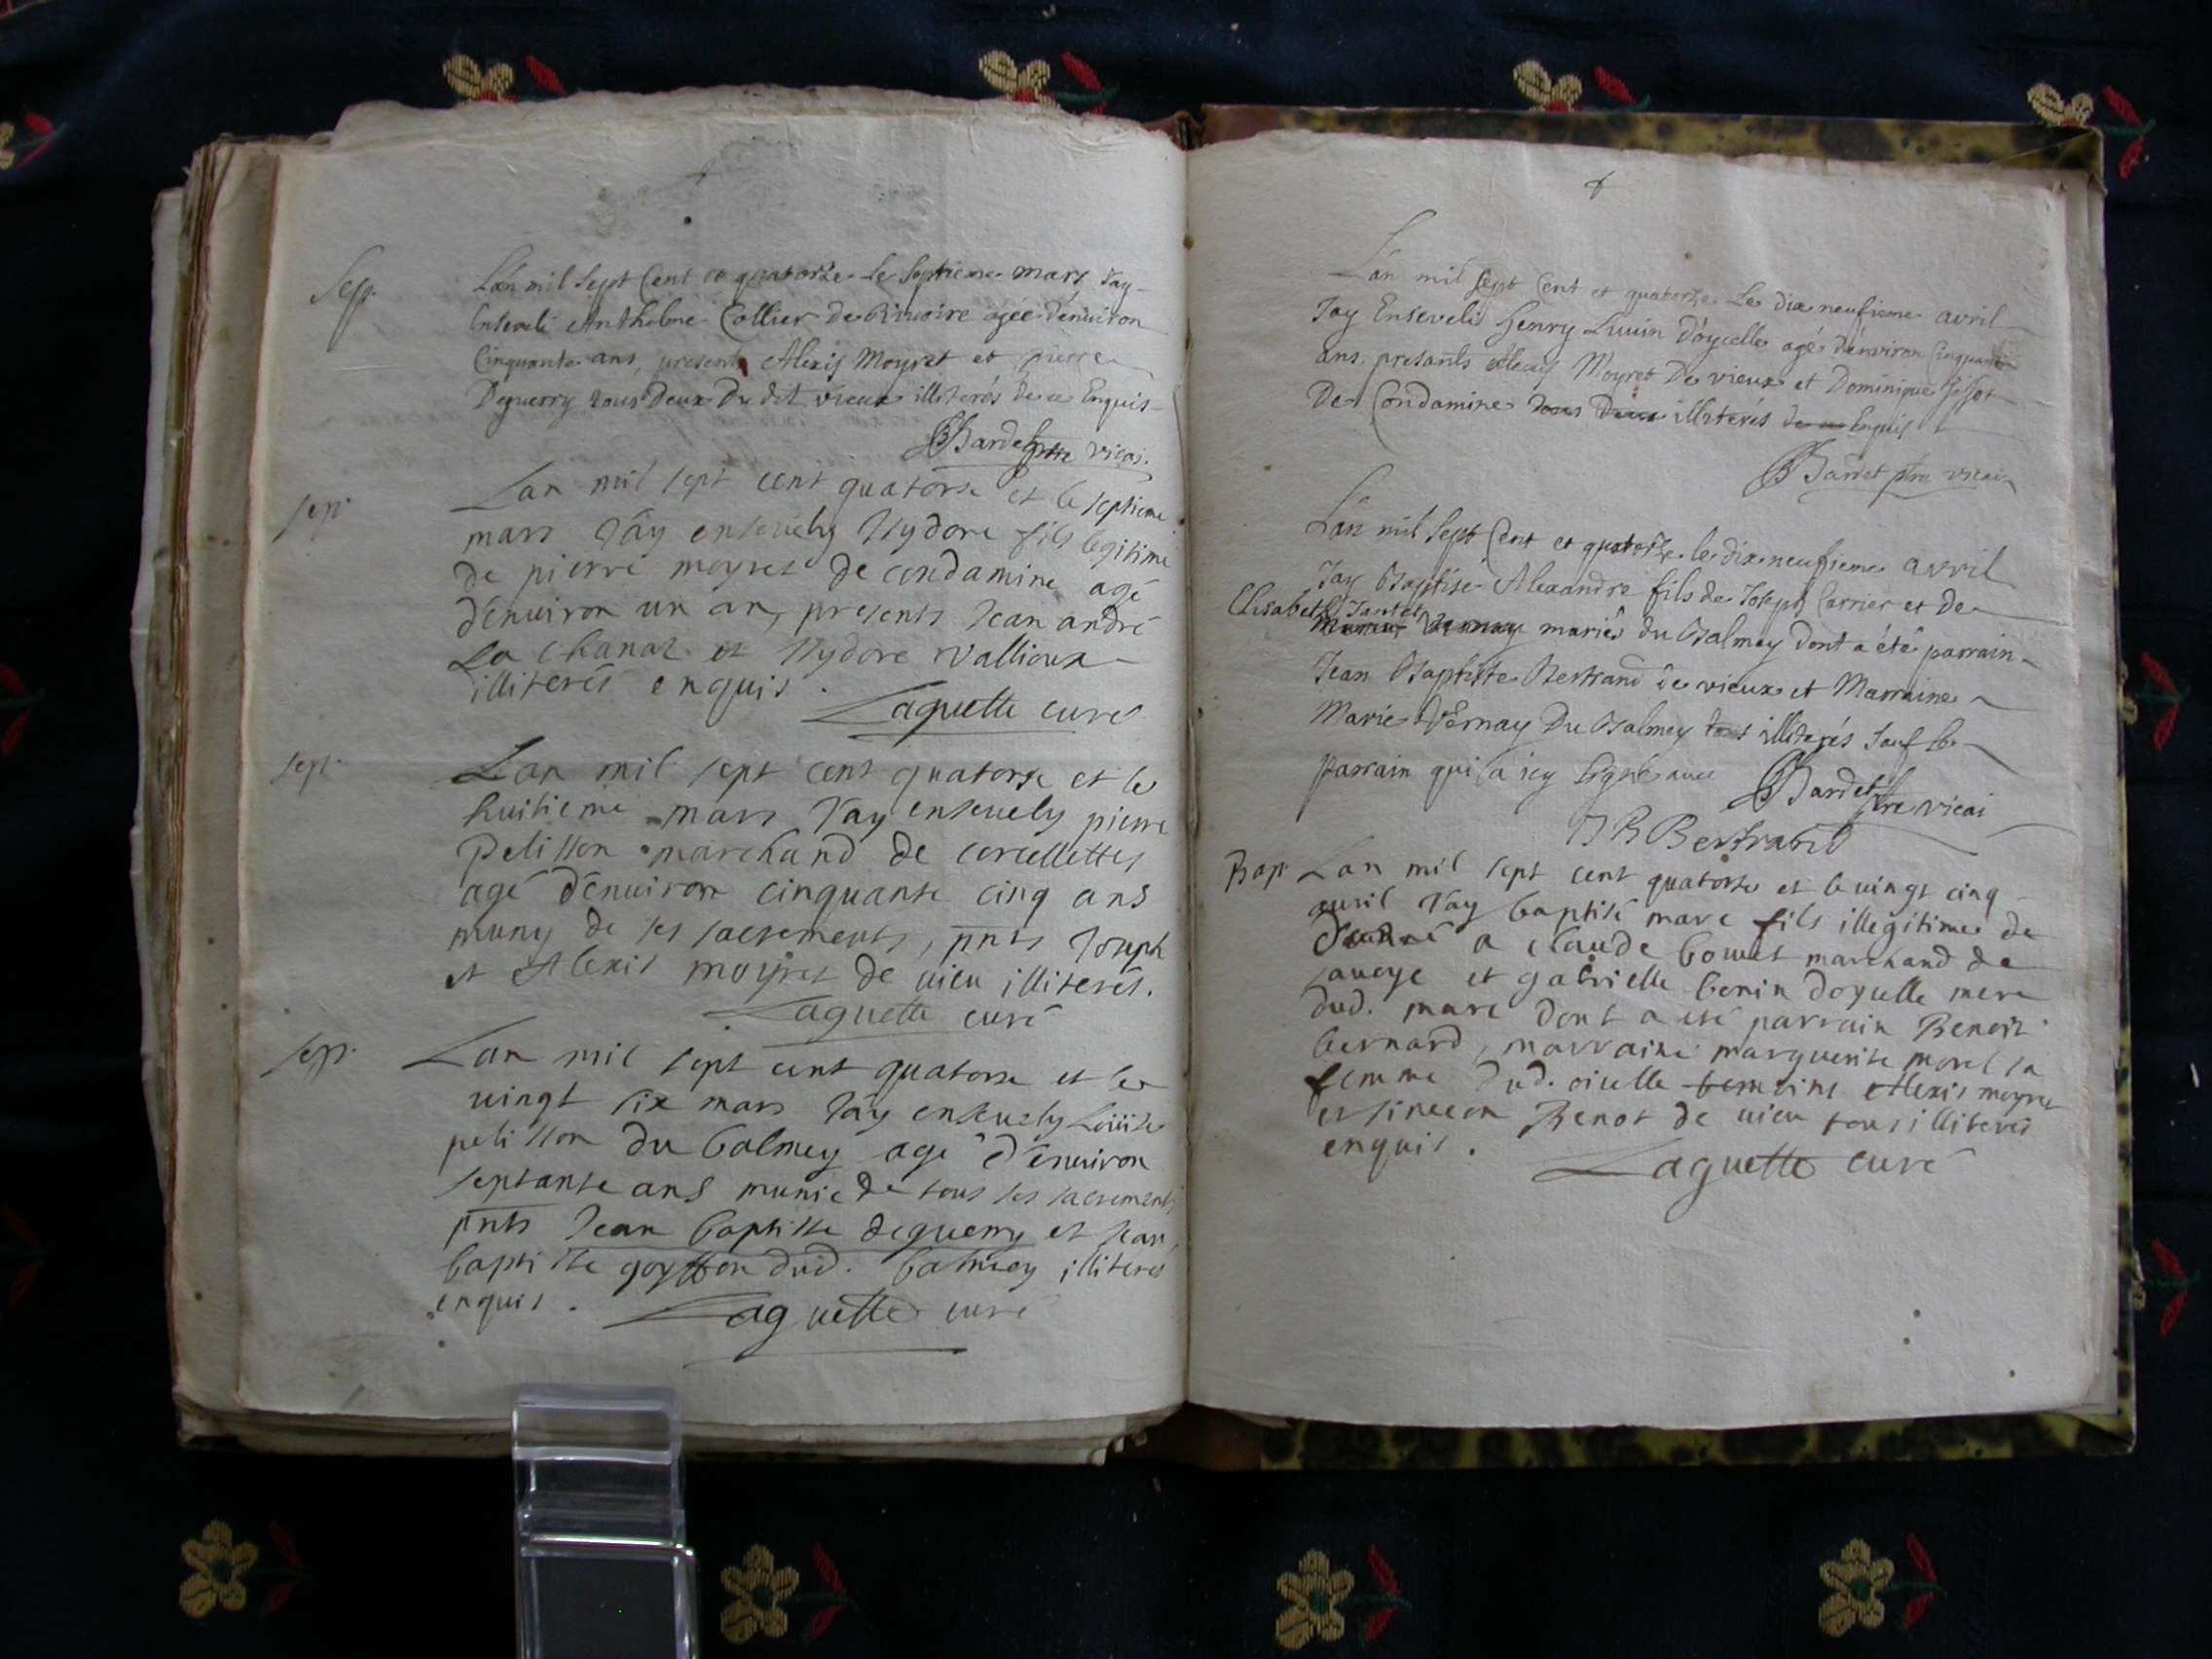 Sep.
L'an mil sept Cent et quatorze le septieme mars Jay
Enseveli Anthelme Collier de Rivoire agée d'environ
Cinquante ans, presents Alexis Moyret et pierre
Deguerry tous Deux Du dit vieux illiterés de ce Enquis
Bardet ptre vicai.
sep.
Lan mil sept cent quatorse et le septieme
mars J'ay ensevely Isydore fils legitime
de pierre moyret de condamine agé
d'enuiron un an, presents Jean andré
La Chanal et Isydore Vallioux
illiterés enquis.
Laguette curé
sep.
Lan mil sept cent quatorse et le
huitieme mars J'ay ensevely pierre
pelisson marchand de corcellettes
agé d'enuiron cinquante cinq ans
muny de ses sacrements, pnts Joseph
et Alexis moyret de uieu illiterés.
Laguette curé
sep.
Lan mil sept cent quatorse et le
uingt six mars J'ay ensevely Loüise
pelisson du balmey agé d'enuiron
septante ans munie de tous ses sacrements
pnts Jean baptiste deguerry et Jean
baptiste goyffon dud. balmey illiterés
enquis.
Laguette curé
L'an mil sept Cent et quatorze Le dix neufieme avril
Jay Enseveli Henry Livuin d'oycelle agé d'environ Cinquante
ans, presants Alexis Moyret De vieux et Dominique
De Condamine tous Deux illiterés de ce Enquis
Bardet ptre vicai
L'an mil sept Cent et quatorze le dix neufieme avril
Jay Baptisé Alexandre fils de Joseph Carrier et de
Elisabeth Jantet
mariés du Balmey dont a été parrain
Jean Baptiste Bertrand de vieux et Marraine
Marie Vernay Du Balmey tous illiterés sauf le
parrain qui a icy signé avec
Bardet ptre vicai
J B Bertrand
Bap.
Lan mil sept cent quatorse et le uingt cinq
auril J'ay baptisé marc fils illegitime de
donné a claude bouuet marchand de
sauoye et gabrielle benin doyselle mere
dud. marc dont a esté parrain Benoit
bernard, marraine marguerite morel sa
femme dud. oiselle temoins Alexis moyret
et simeon Benot de uieu tous illiterés
enquis.
Laguette curé